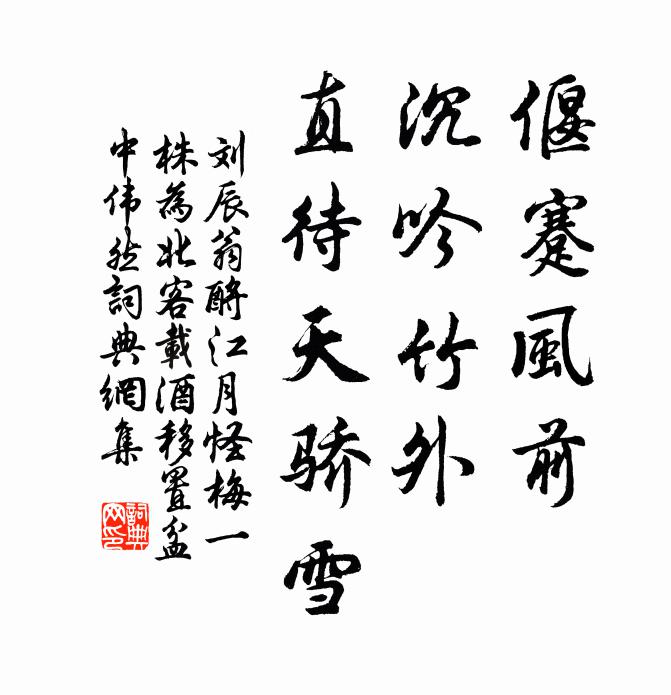 偃蹇風前
沉吟竹外
直待天骄雪
刘辰翁酹江月怪梅一
株為北客載酒移置盆
中伟然詞典網集
詞典网印